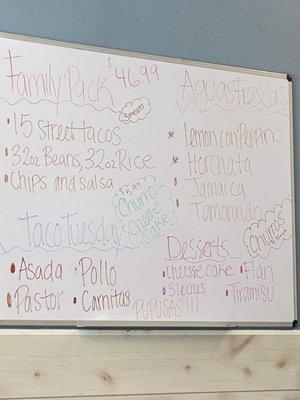 Family Pack $46.99
3 meats
• 15 street tacos
• 32oz Beans, 32oz Rice
• Chips and salsa
Aguas Frescas
lemon con Peppino
Horchata
Jamaica
Tamarindo
$5.99
Churro
cheese
cake
Taco Tuesday
• Asada • Pollo
• Pastor • Carnitas
Desserts
• Cheasse cake • Flan
• 3 leches • Tiramisu
Churros
PUPUSAS!!!